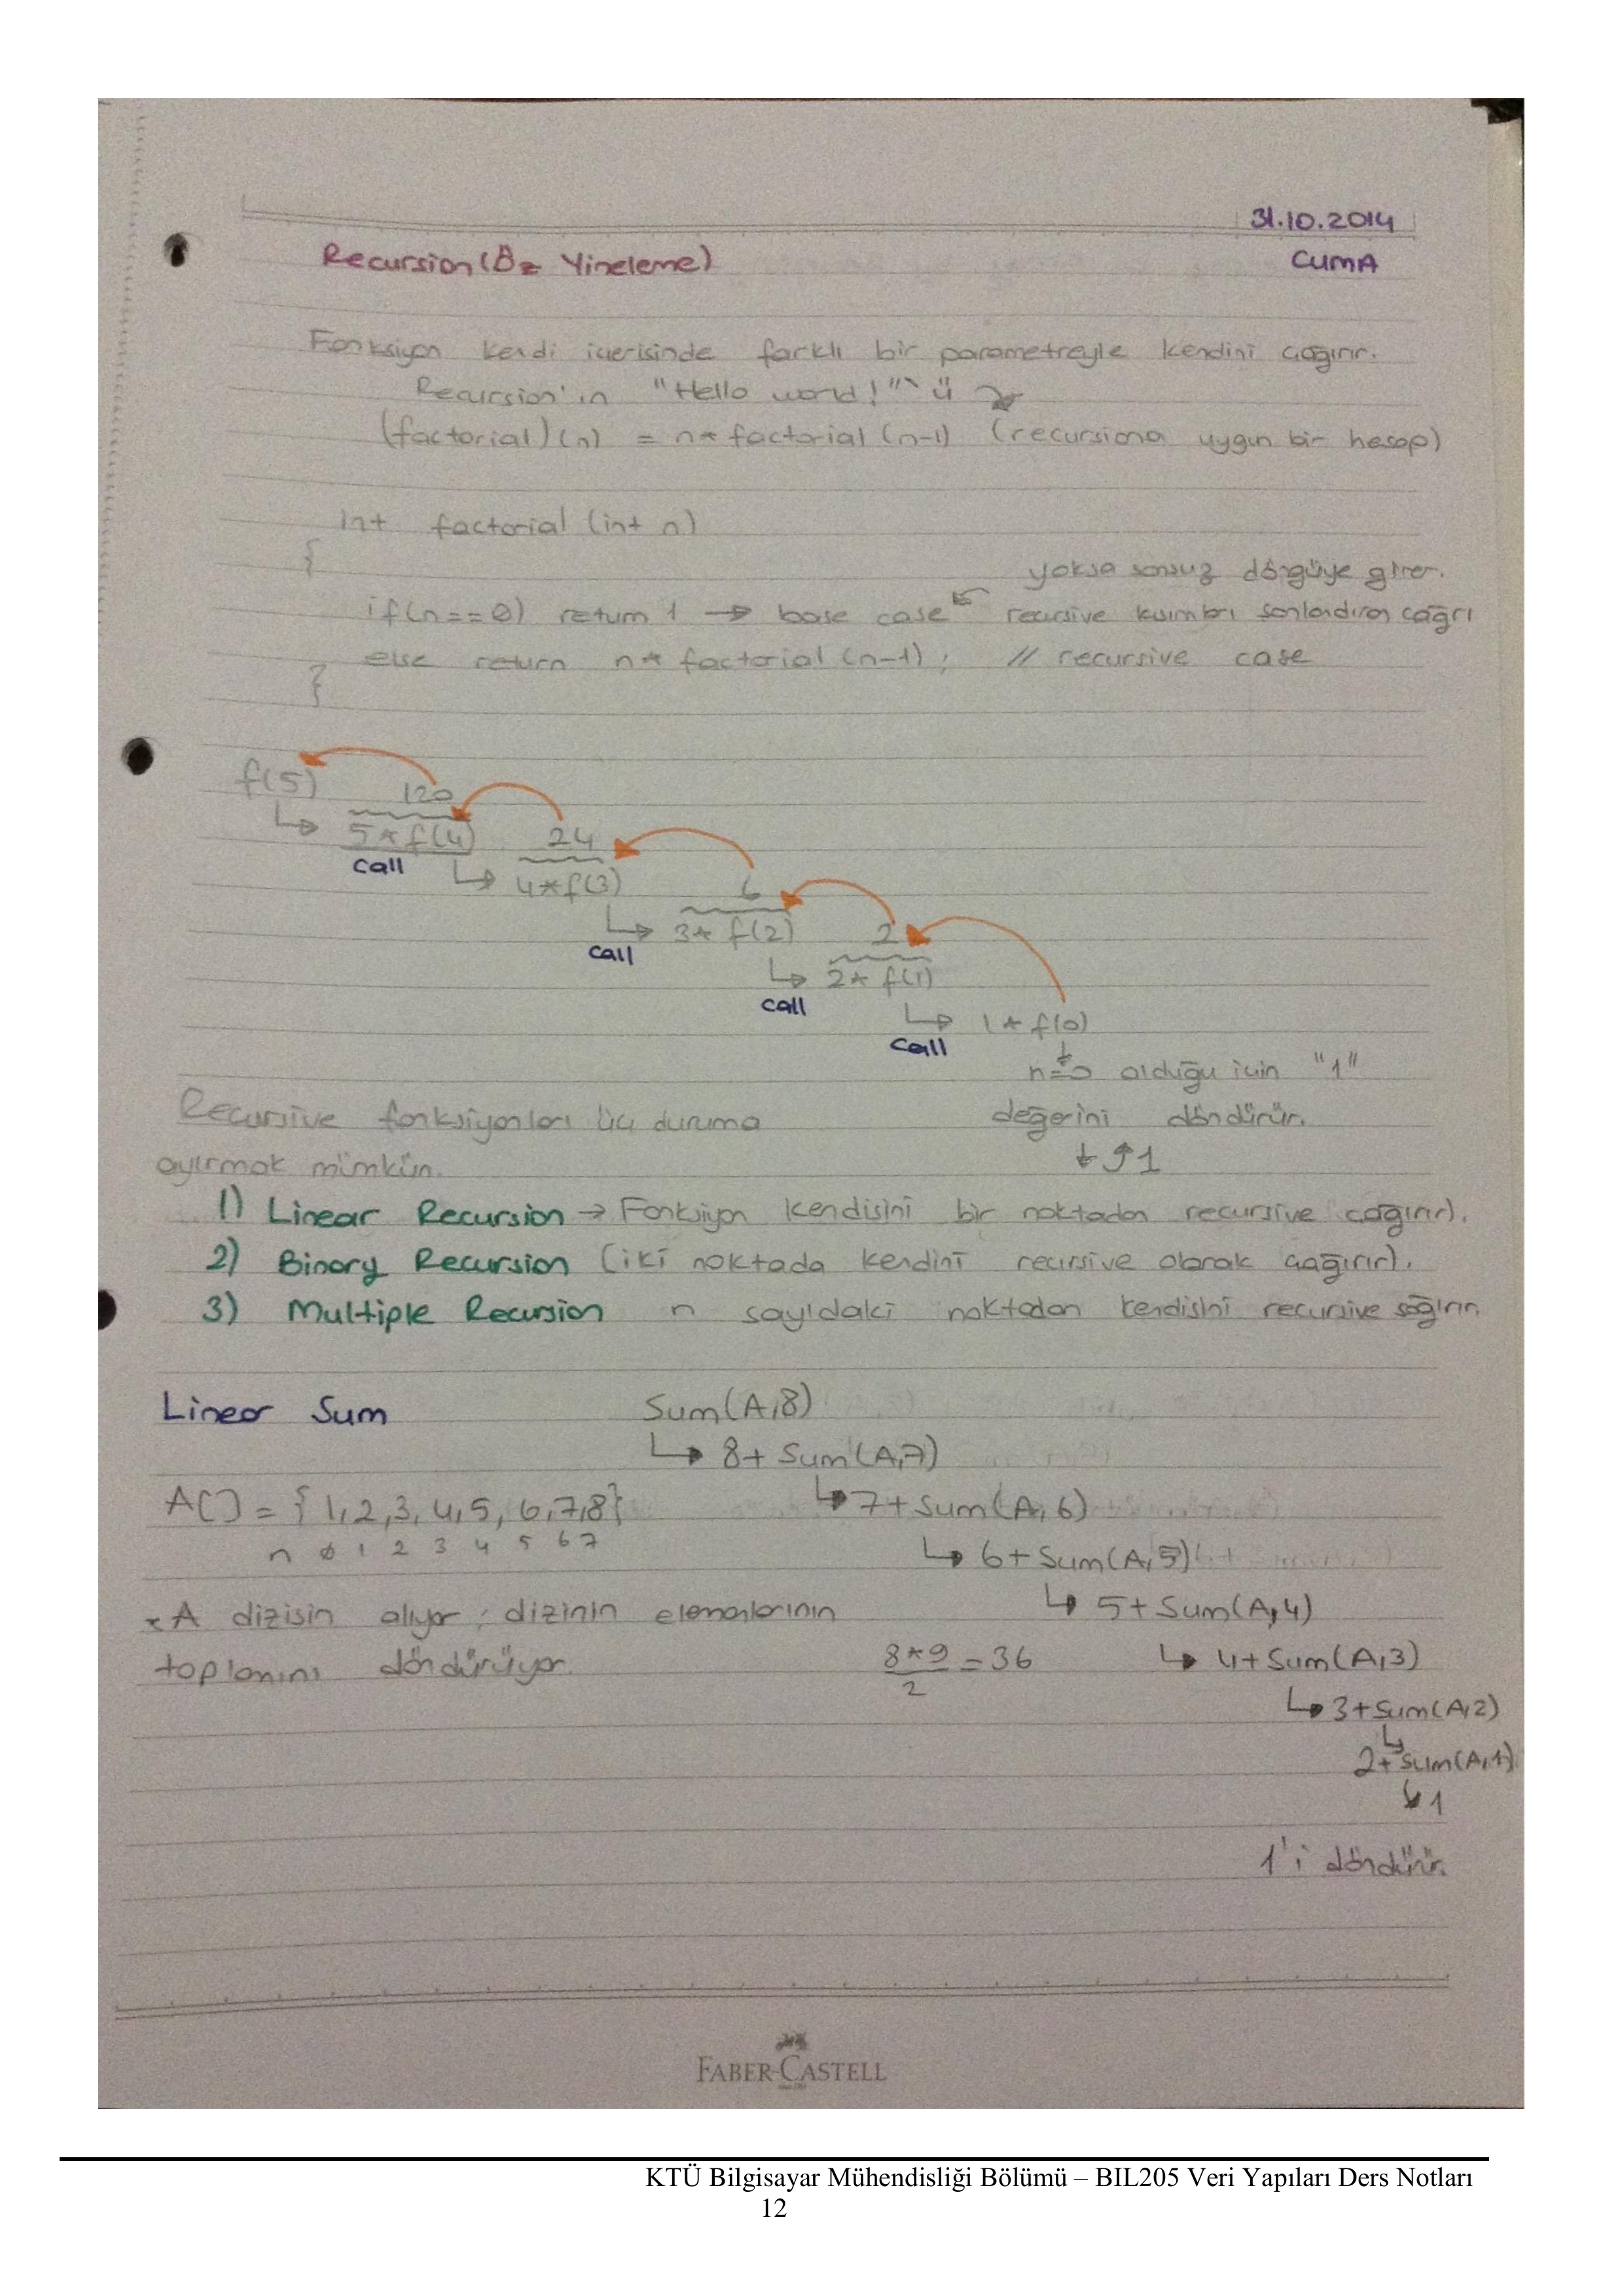 31.10.2014
Recursion (Öz Yineleme)
CUMA
Fonksiyon kendi içerisinde farklı bir parametreyle kendini çağırır.
Recursion'ın "Hello world!"'ü
(factorial)(n) = n* factorial (n-1) (recursiona uygun bir hesap)
int factorial (int n)
{
yoksa sonsuz döngüye girer.
if(n==0) return 1 → base case recursive kısımları sonlandıran çağrı
else return n* factorial (n-1); // recursive case
}
f(5) 120
5*f(4) 24
call
4*f(3) 6
3* f(2) 2
call
2* f(1)
call
1* f(0)
call
n=0 olduğu için "1"
Recursive fonksiyonları üç duruma
değerini döndürür.
ayırmak mümkün.
↓ ↑ 1
1) Linear Recursion → Fonksiyon kendisini bir noktadan recursive çağırır).
2) Binary Recursion (iki noktada kendini recursive olarak çağırır).
3) Multiple Recursion n sayıdaki noktadan kendisini recursive sağırır.
Linear Sum
Sum(A,8)
↳ 8+ Sum(A,7)
A[] = {1,2,3,4,5,6,7,8}
↳ 7+Sum(A,6)
n 0 1 2 3 4 5 6 7
↳ 6+Sum(A,5)
↳ 5+Sum(A,4)
A dizisin alıyor; dizinin elemanlarının
toplamını döndürüyor.
8*9 = 36
2
↳ 4+Sum(A,3)
↳ 3+Sum(A,2)
↳
2+Sum(A,1)
↳ 1
1'i döndürür.
FABER-CASTELL
KTÜ Bilgisayar Mühendisliği Bölümü – BIL205 Veri Yapıları Ders Notları
12